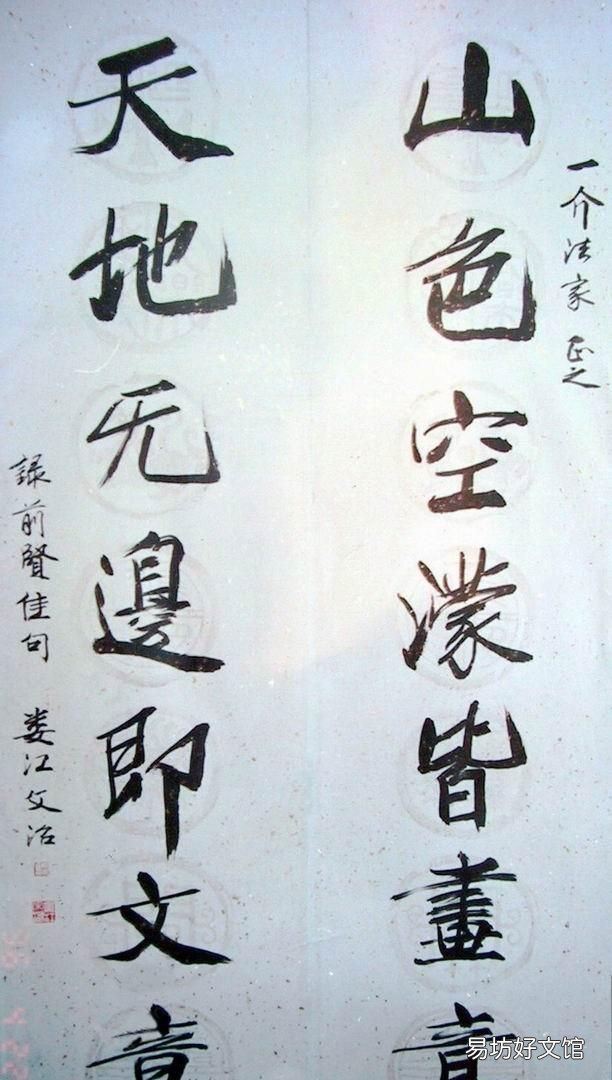 一介法家 正之
山色空濛皆畫
天地无邊即文
録前賢佳句 娄江文治
易坊好文馆